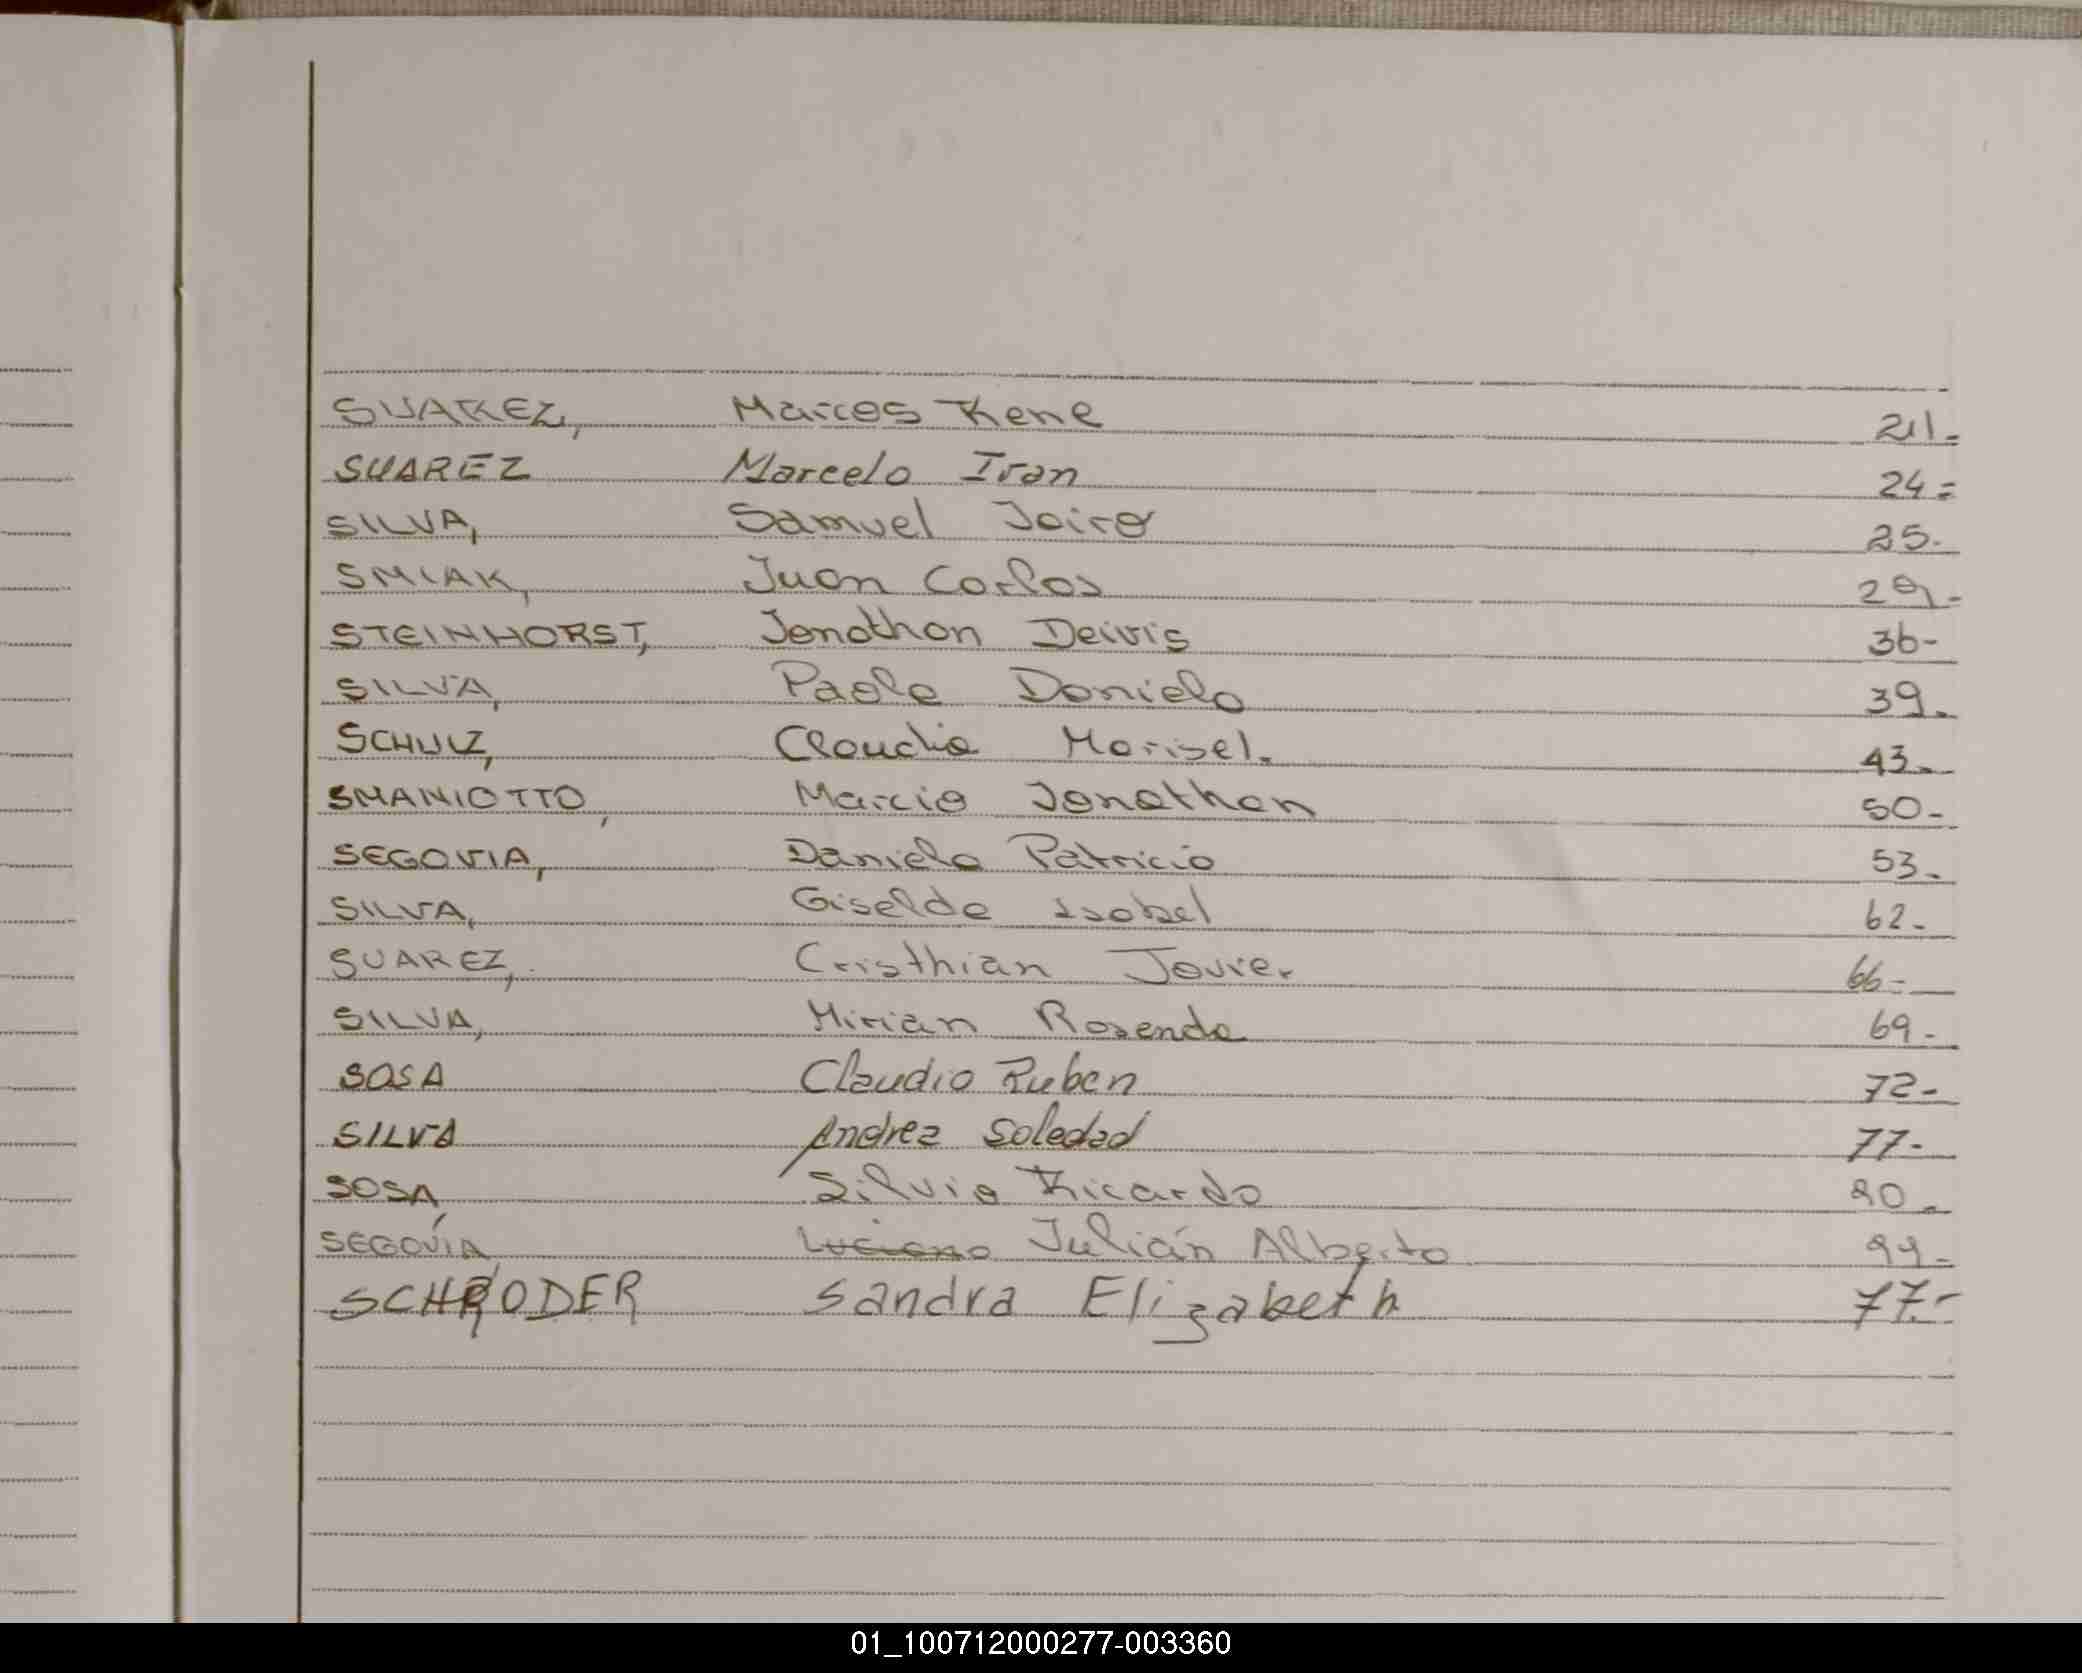 SUAREZ, Marcos Rene 21.
SUAREZ Marcelo Ivan 24=
SILVA, Samuel Jairo 25.
SMIAK, Juan Carlos 29-
STEINHORST, Jonathan Deivis 36-
SILVA, Paola Daniela 39.
SCHULZ, Claudia Marisel. 43.
SMANIOTTO, Marcio Jonathan 50-
SEGOVIA, Daniela Patricia 53.
SILVA, Giselda Isabel 62-
SUAREZ, Cristhian Javier 66-
SILVA, Mirian Rosenda 69-
SOSA Claudio Ruben 72-
SILVA Andrea Soledad 77-
SOSA, Silvio Ricardo 90.
SEGOVIA Luciano Julián Alberto 94-
SCHRODER Sandra Elizabeth 77.-
01_100712000277-003360